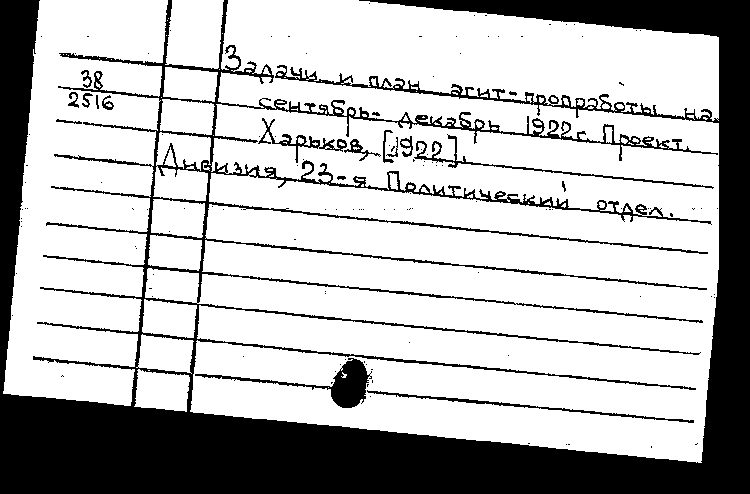 Задачи и план агит-пропработы на
38
2516
сентябрь- декабрь 1922 г. Проект.
Харьков, [1922].
Дивизия, 23-я. Политический отдел.